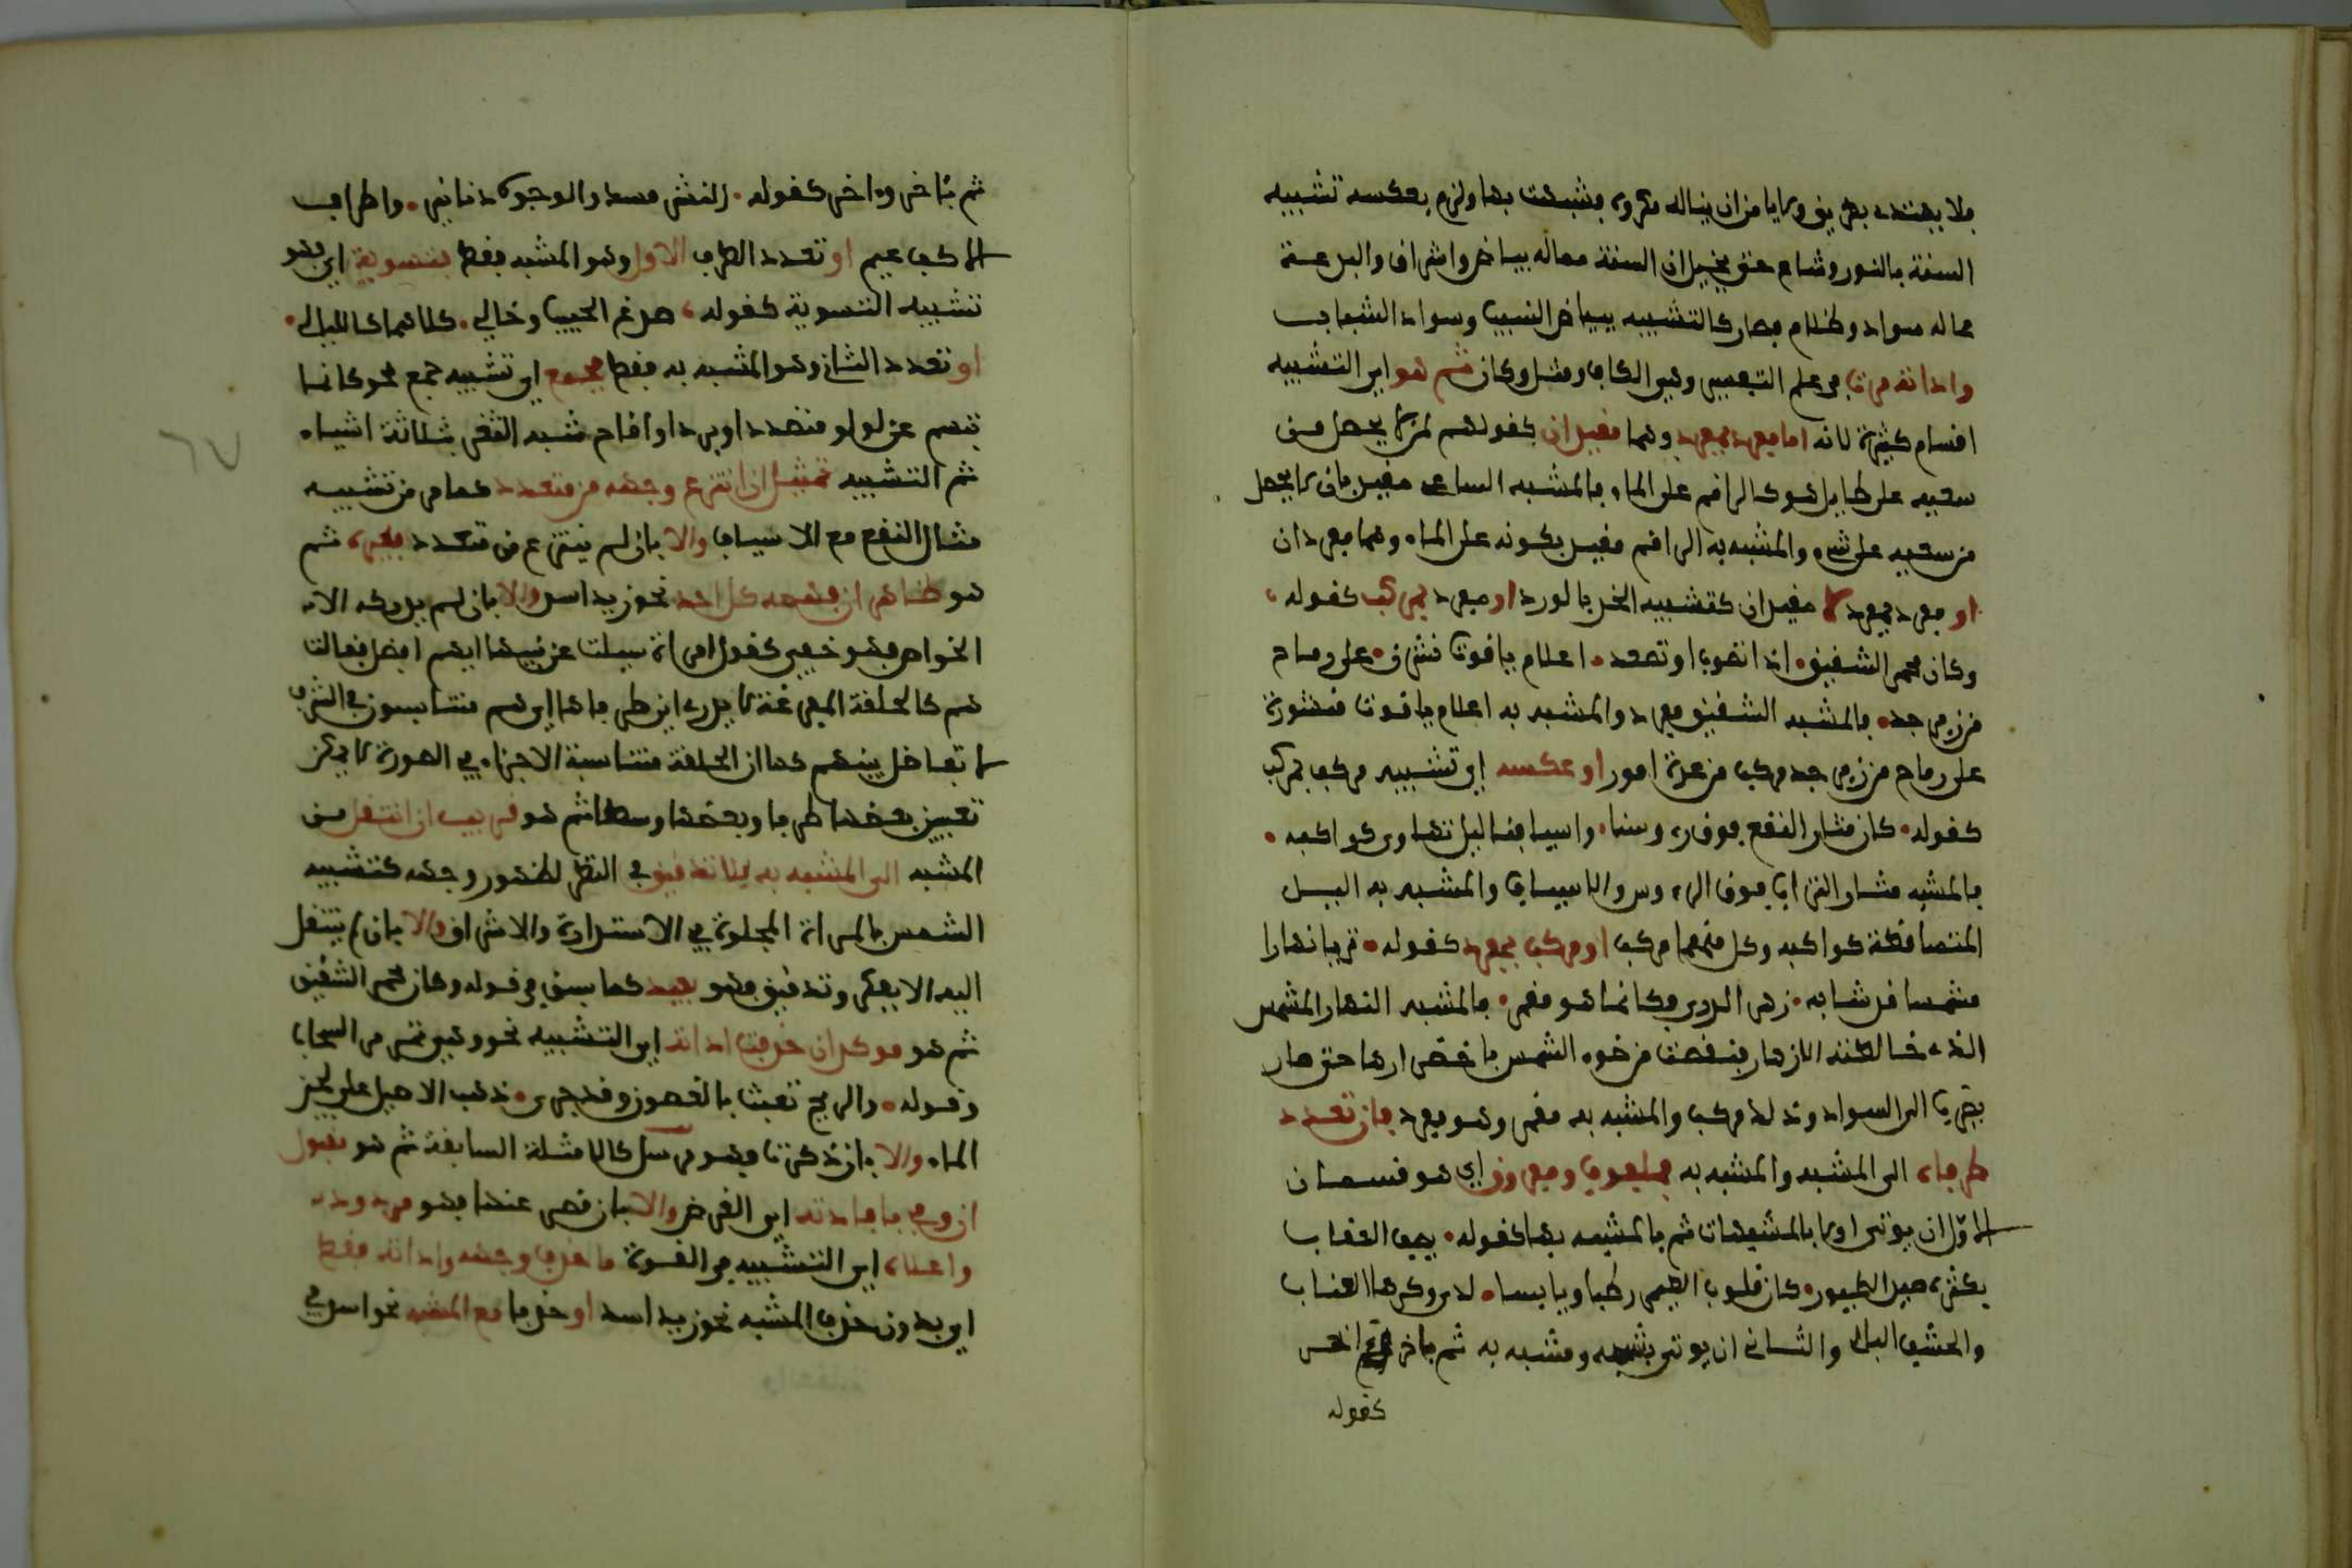 فلا يهتدي بطريق ولا يامن ان يناله مكروه فشبهت بها ولزم بعكسه تشبيه
السنة بالنور وشاع حتى يخيل ان السنة مماله بياض واشراق والبدعة
مماله سواد وظلام فصار كالتشبيه ببياض الشيب وسواد الشباب
واداته مرت في علم التفسير وهي الكاف ومثل وكان ثم هو اي التشبيه
اقسام كثيرة لانه اما مفرد بمفرد وهما مقيدان كقولهم لمن لا يحصل من
سعيه على طايل هو كالراقم على الماء فالمشبه الساعي مقيد بان لا يحصل
من سعيه على شيء والمشبه به الراقم مقيد بكونه على الماء وهما مفردان
او مفرد بمفرد لا مقيدان كتشبيه الخد بالورد او مفرد بمركب كقوله
وكان محمر الشقيق • اذا تصوب او تصعد • اعلام ياقوت نشرن • على رماح
من زبرجد • فالمشبه الشقيق مفرد والمشبه به اعلام ياقوت منشورة
على رماح من زبرجد مركب من عدة امور او عكسه اي تشبيه مركب بمركب
كقوله • كان مثار النقع فوق رءوسنا • واسيافنا ليل تهاوى كواكبه •
فالمشبه مثار التراب فوق الرءوس والاسياف والمشبه به الليل
المتساقطة كواكبه وكل منهما مركب او مركب بمفرد كقوله • تريا نهارا
مشمسا قد شابه • زهر الربى فكانما هو مقمر • فالمشبه النهار المشمس
الذي خالطته الازهار فنقصت من ضوء الشمس باخضرارها حتى صار
يضرب الى السواد وذلك مركب والمشبه به مقمر وهو مفرد فان تعدد
طرفاه الى المشبه والمشبه به فملفوف ومفروق اي هو قسمان
الاول ان يوتى اولا بالمشبهات ثم بالمشبه بها كقوله • يصف العقاب
بكثرة صيد الطيور • كان قلوب الطير رطبا ويابسا • لدى وكرها العناب
والحشف البالي والثاني ان يوتى بمشبه ومشبه به ثم باخر واخر
كقوله
ثم باخر واخر كقوله • النشر مسك والوجوه دنانير • واطراف
الاكف عنم او تعدد الطرف الاول وهو المشبه فقط فتسوية اي فهو
تشبيه التسوية كقوله • صدغ الحبيب وحالي • كلاهما كالليالي •
او تعدد الثاني وهو المشبه به فقط فجمع اي تشبيه جمع نحو كانما
تبسم عن لولو منضد او برد او اقاح شبه الثغر بثلاثة اشياء
ثم التشبيه تمثيل ان انتزع وجهه من متعدد كما مر من تشبيه
مثار النقع مع الاسياف والا بان لم ينتزع من متعدد فغيره ثم
هو ظاهر ان فهمه كل احد نحو زيد اسد والا بان لم يدركه الا
الخواص فهو خفي كقول امراة سيلت عن بنيها ايهم افضل فقالت
هم كالحلقة المفرغة لا يدرى اين طرفاها اي هم متناسبون في الشرف
لا تفاضل بينهم كما ان الحلقة متناسبة الاجزاء في الصورة لا يمكن
تعيين بعضها طرفا وبعضها وسطا ثم هو قريب ان انتقل من
المشبه الى المشبه به بلا تدقيق في النظر لظهور وجهه كتشبيه
الشمس بالمراة المجلوة في الاستدارة والاشراق والا بان لم ينتقل
اليه الا بفكر وتدقيق فهو بعيد كما سبق في قوله وكان محمر الشقيق
ثم هو موكد ان حذفت اداته اي التشبيه نحو وهي تمر مر السحاب
وقوله • والريح تعبث بالغصون وقد جرى • ذهب الاصيل على لجين
الماء والا بان ذكرت فهو مرسل كالامثلة السابقة ثم هو مقبول
ان وفى بافادته اي الغرض والا بان قصر عنها فهو مردود
واعلاه اي التشبيه في القوة ما حذف وجهه واداته فقط
اي بدون حذف المشبه نحو زيد اسد او حذفا مع المشبه نحو اسد في
٦٧